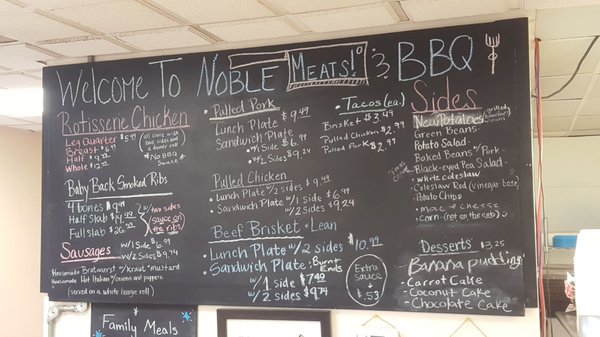 Welcome To Noble Meats! & BBQ
Rotisserie Chicken
Leg Quarter $5.99
Breast $6.99
Half $9.99
Whole
(all come with two sides and a dinner roll)
*No BBQ Sauce*
Baby Back Smoked Ribs
4 bones $9.99
Half slab $14.99
Full slab $26.99
w/ two sides
sauce on the ribs
Sausages
w/ 1 side $6.99
w/ 2 sides $9.24
Housemade Bratwurst w/ kraut + mustard
Housemade Hot Italian w/ onions and peppers
(Served on a white hoagie roll)
Family Meals
Pulled Pork
Lunch Plate $9.49
Sandwich Plate
w/ 1 side $6.99
w/ 2 sides $9.24
Pulled Chicken
Lunch Plate w/ 2 sides $9.99
Sandwich Plate w/ 1 side $6.99
w/ 2 sides $9.24
Beef Brisket - Lean
Lunch Plate w/ 2 sides $10.99
Sandwich Plate: Burnt Ends
w/ 1 side $7.49
w/ 2 sides $9.74
Extra sauce $.53
Tacos (ea.)
Brisket $3.49
Pulled Chicken $2.99
Pulled Pork $2.99
Sides
New Potatoes
Green Beans
Potato Salad
Baked Beans w/ Pork
Black-eyed Pea Salad
white coleslaw
Coleslaw Red (vinegar base)
Potato Chips
mac & cheese
corn (not on the cob)
Desserts $3.25
Banana pudding
- Carrot Cake
- Coconut Cake
- Chocolate Cake